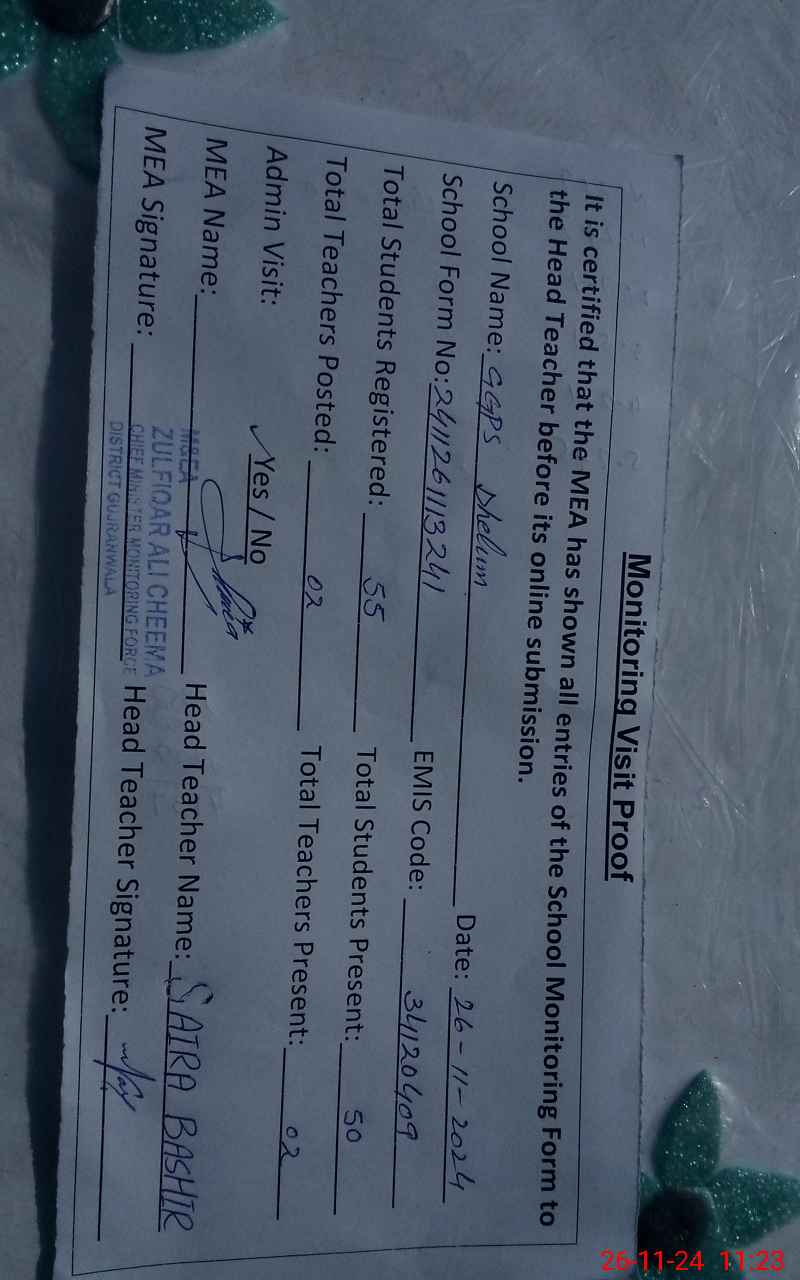 Monitoring Visit Proof
It is certified that the MEA has shown all entries of the School Monitoring Form to
the Head Teacher before its online submission.
School Name: GGPS Dhelum Date: 26-11-2024
School Form No: 2411261113241 EMIS Code: 34120409
Total Students Registered: 55 Total Students Present: 50
Total Teachers Posted: 02 Total Teachers Present: 02
Admin Visit: ✓Yes / No
MEA Name: Head Teacher Name: SAIRA BASHIR
MEA Signature: Head Teacher Signature:
M&EA
ZULFIQAR ALI CHEEMA
CHIEF MINISTER MONITORING FORCE
DISTRICT GUJRANWALA
26-11-24 11:23